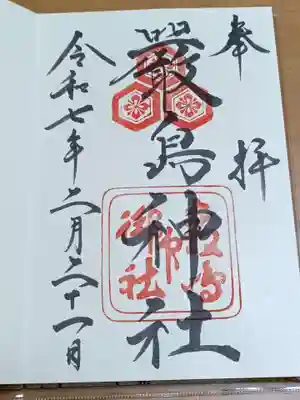 奉拝
嚴島神社
令和七年二月二十一日